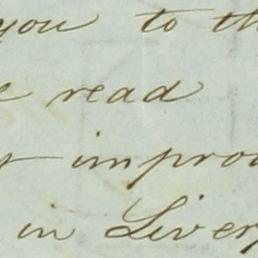 you to th
read
improv
in Liverp